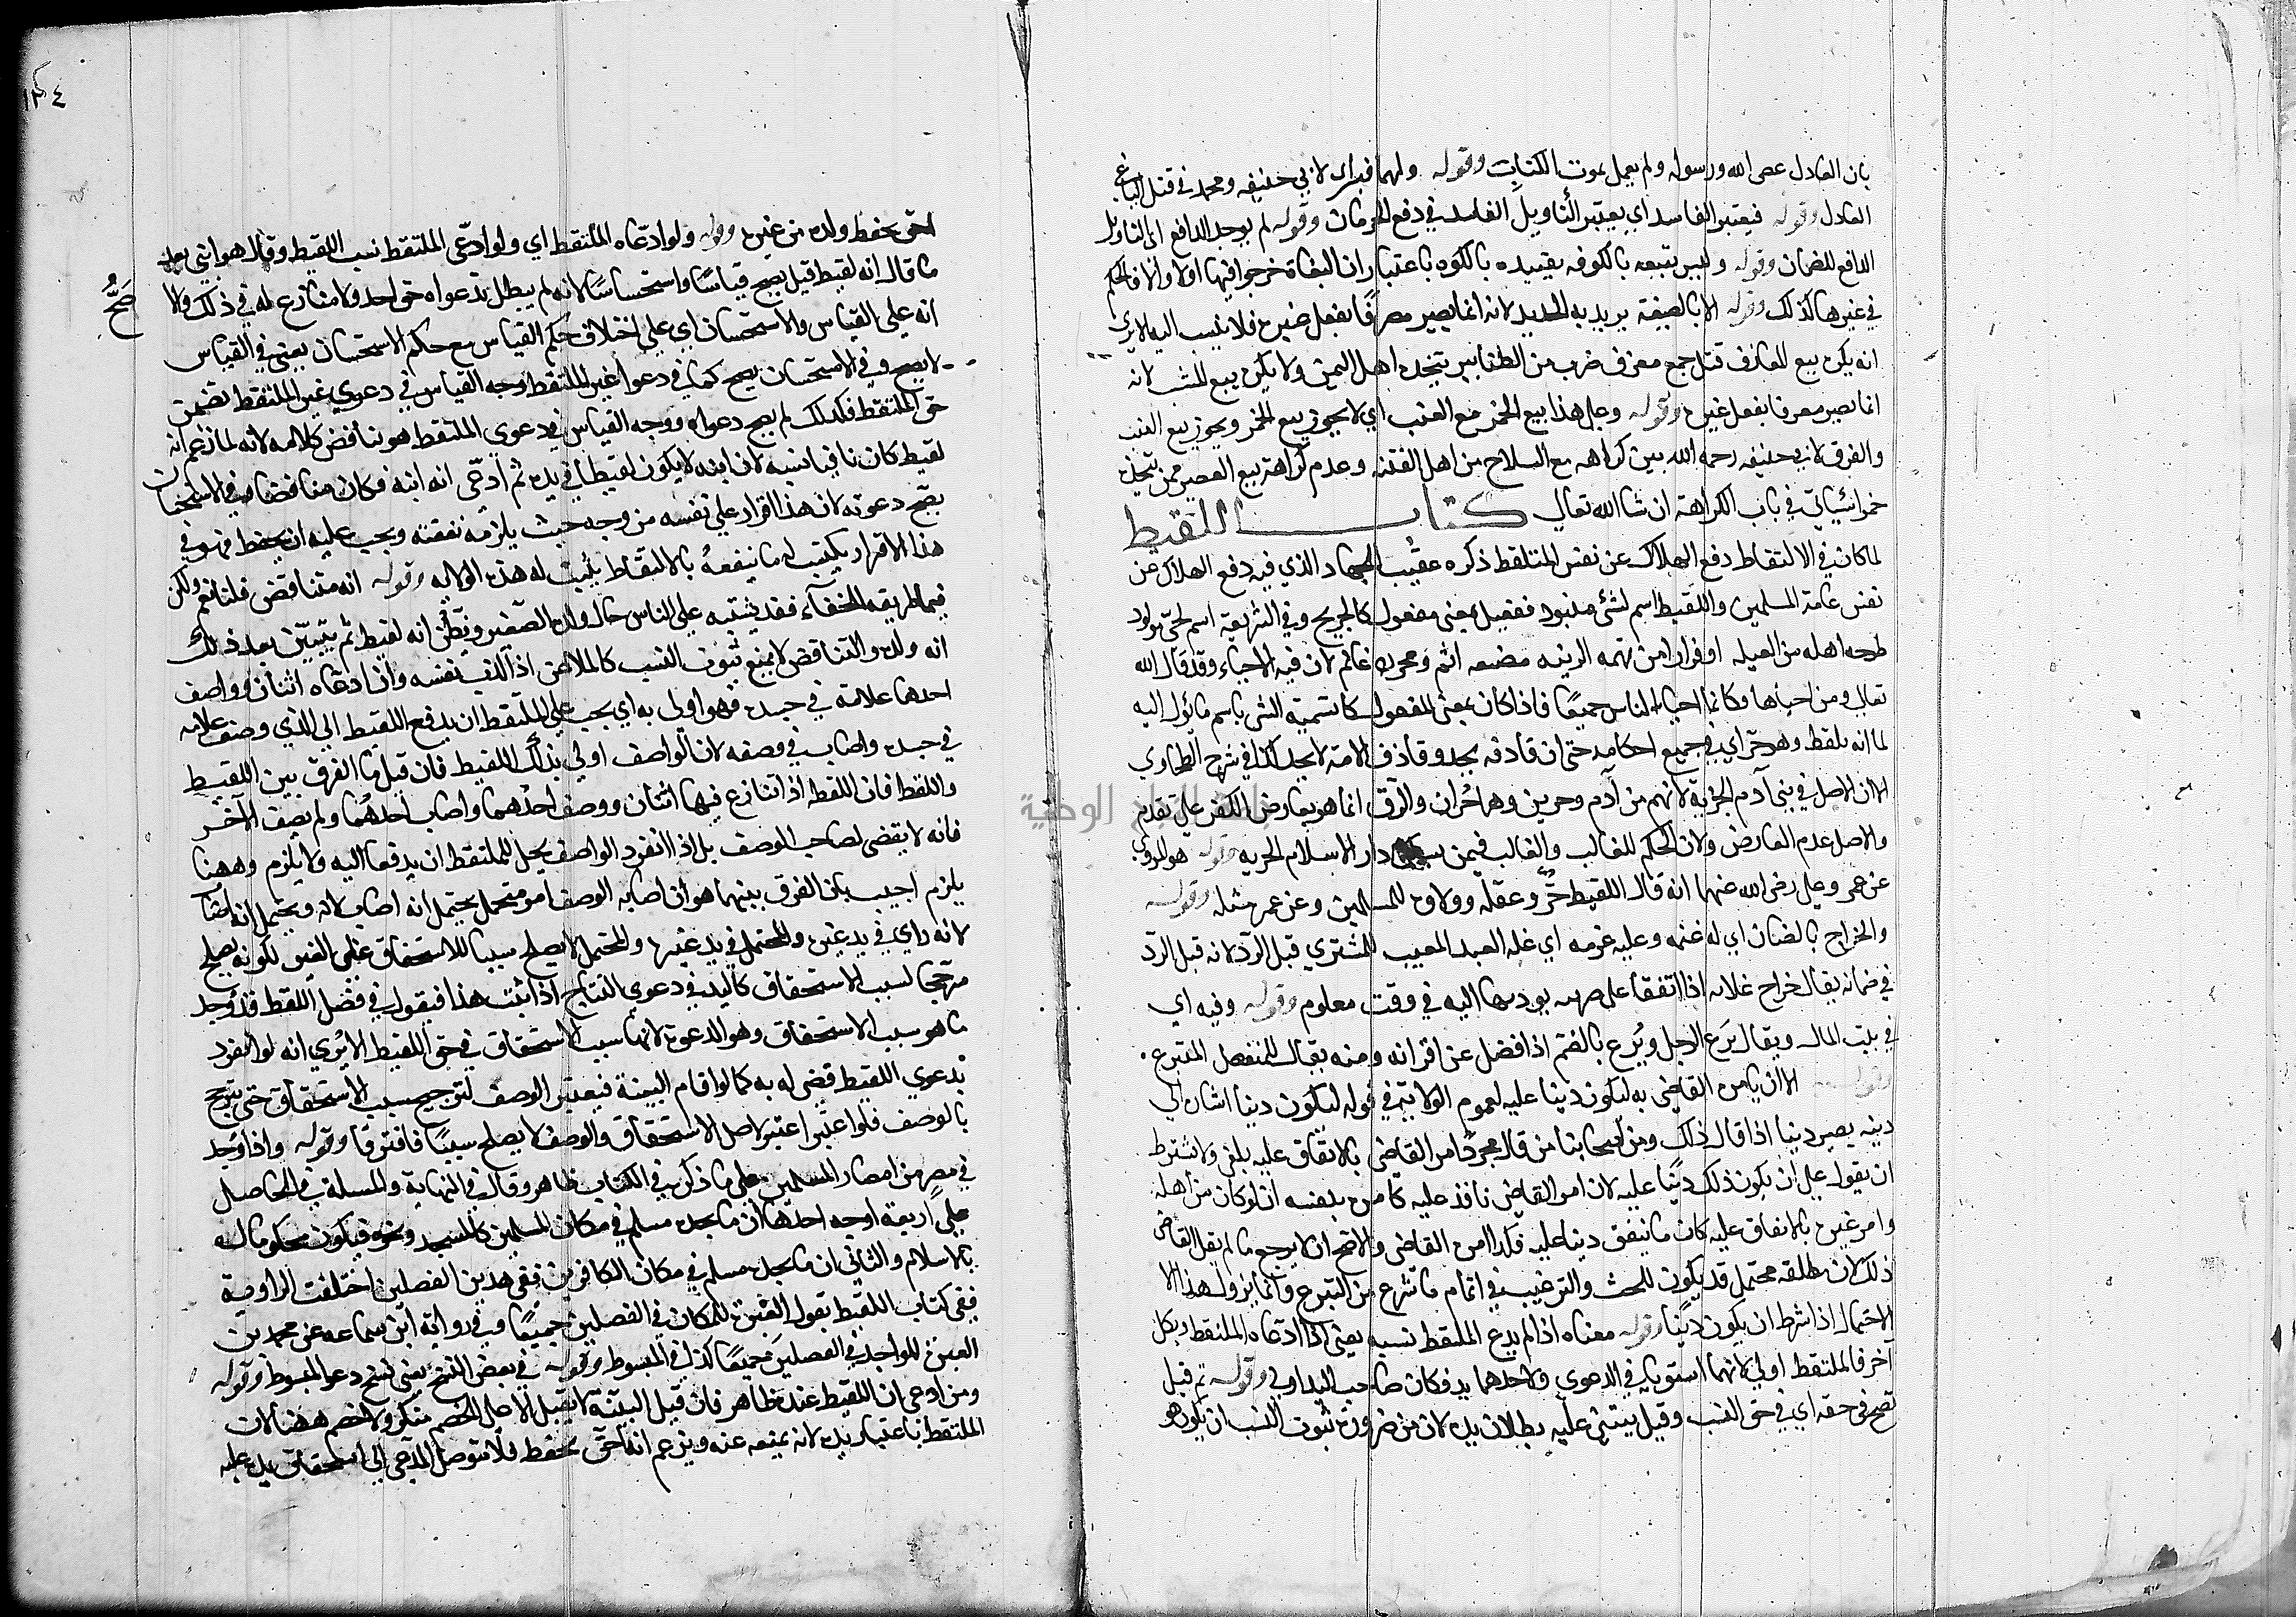 بان العادل عصى الله ورسوله ولم يعمل بموت الكتاب وقوله ولهما فيه اي لابي حنيفه ومحمد في قتل الباغي
العادل وقوله فيعتبر الفاسد اي يعتبر التأويل الفاسد في دفع الحرمان وقوله لم يوجد الدافع اي التاويل
الدافع للضمان وقوله وليس تتبعه بالكوفه تقييده بالكوفه باعتبار ان البغاة خرجوا فيها اولا والا فالحكم
في غيرها كذلك وقوله الا بالصيغة يريد به الحديد لانه انما يصير معرفًا بفعل غيره فلا ينسب اليه الا يرى
انه يكره بيع المعازف قيل جمع معزف ضرب من الطنابير يتخذه اهل اليمن ولا يكره بيع الخشب لانه
انما يصير معزفا بفعل غيره وقوله وعلى هذا بيع الخمر مع العنب اي لا يجوز بيع الخمر ويجوز بيع العنب
والفرق لابي حنيفه رحمه الله بين كراهه بيع السلاح من اهل الفتنه وعدم كراهة بيع العصير ممن يتخذه
خمرا سيأتي في باب الكراهة ان شا الله تعالى كتاب اللقيط
لما كان في الالتقاط دفع الهلاك عن نفس الملتقط ذكره عقيب الجهاد الذي فيه دفع الهلاك عن
نفس عامة المسلمين واللقيط اسم لشئ منبوذ فعيل بمعنى مفعول كالجريح وفي الشريعة اسم لحي مولود
طرحه اهله من العيله او فرارا من تهمه الريبه مضيعه اثم ومحرزه غانم لان فيه الاحياء وقد قال الله
تعالى ومن احياها فكانما احيا الناس جميعًا فاذا كان بمعنى المفعول كان تسمية الشي باسم مايؤل اليه
لما انه يلقط وهو حر اي في جميع احكامه حتى ان قاذفه يحد وقاذف الامة لا يحد كذا في شرح الطحاوي
الا ان الاصل في بني آدم الحرية لانهم من آدم وحوي وهما حُران والرق انما هو بعارض الكفر على تقدم
والاصل عدم العارض ولان الحكم للغالب والغالب فيمن يسكن دار الاسلام الحريه وقوله هو المروي
عن عمر وعلي رضي الله عنهما انه قال اللقيط حُرٌّ وعقله وولاؤه للمسلمين وعن عمر مثله وقوله
والخراج بالضمان اي له غنمه وعليه غرمه اي غله العبد المعيب للمشتري قبل الرد لانه قبل الرد
في ضمانه يقال خارج غلامه اذا اتفقا على ضريبه يوديها اليه في وقت معلوم وقوله وفيه اي
في بيت المال ويقال بَرَع الرجل وبُرع بالضم اذا فضل عن اقرانه ومنه يقال للمتفضل المتبرع
وقوله الا ان يامره القاضي به ليكون دينا عليه لعموم الولاية في قوله ليكون دينا اشاره الى
دينه يصير دينا اذا قال ذلك ومن اصحابنا من قال مجرد امر القاضي بالانفاق عليه يكفي ولا يشترط
ان يقول على ان يكون ذلك دينًا عليه لان امر القاضي نافذ عليه كامره بنفسه ان لو كان من اهله
وامر غيره بالانفاق عليه كان ما ينفق دينا عليه فكذا امر القاضي والاصح ان لا يرجع ما لم يقل القاضي
ذلك لان مطلقه محتمل قد يكون للحث والترغيب في اتمام ما شرع من التبرع وانما يزول هذا الا
الاحتمال اذا شرط ان يكون دينًا وقوله معناه اذا لم يدع الملتقط نسبه يعني اذا ادعاه الملتقط ورجل
آخر فالملتقط اولى لانهما استويا في الدعوى ولاحدهما يد فكان صاحب اليد اولى وقوله ثم قيل
تصح في حقه اي في حق النسب وقيل يبتنى عليه بطلان يده لان من ضرورة ثبوت النسب ان يكون هو
١٣٤
احق بحفظ ولده من غيره وقوله ولو ادعاه الملتقط اي ولو ادّعى الملتقط نسب اللقيط وقال هو ابني بعد
ما قال انه لقيط قيل يصح قياسًا واستحسانًا لانه لم يبطل بدعواه حق احد ولا منازع له في ذلك والا
صَحُّ
انه على القياس والاستحسان اي على اختلاف حكم القياس مع حكم الاستحسان يعني في القياس
لا يصح وفي الاستحسان يصح كما في دعوا غير الملتقط وجه القياس في دعوي غير الملتقط تضمن
حق الملتقط فلذلك لم يصح دعواه ووجه القياس في دعوي الملتقط هو تناقض كلامه لانه لما زعم انه
لقيط كان نافيا نسبه لان ابنه لا يكون لقيطا في يده ثم ادّعى انه ابنه فكان مناقضا وفي الاستحسان
يصح دعوته لان هذا اقرار على نفسه من وجه حيث يلزمه نفقته ويجب عليه ان يحفظ فهو في
هذا الاقرار يكتسب له ما ينفعهُ بالالتقاط يثبت له هذه الولايه وقوله انه متناقض قلنا نعم ولكن
فيما طريقه الخفآء فقد يشتبه على الناس حال ولده الصغير ويظن انه لقيط ثم يتبين بعد ذلك
انه ولده والتناقض لا يمنع ثبوت النسب كالملاعن اذا اكذب نفسه وان ادعاه اثنان ووصف
احدهما علامة في جسده فهو اولى به اي يجب على الملتقط ان يدفع اللقيط الى الذي وصف علامه
في جسده واصاب في وصفه لان الواصف اولى بذلك اللقيط فان قيل ما الفرق بين اللقيط
واللقطه فان اللقطه اذا تنازع فيها اثنان ووصف احدهما واصاب احدهُما ولم يصف الآخر
فانه لا يقضى لصاحب الوصف بل اذا انفرد الواصف يحل للملتقط ان يدفعها اليه ولا يلزم وههنا
يلزم اجيب بان الفرق بينهما هو ان اصابه الوصف امر محتمل يحتمل انه اصاب لانه ويحتمل انه اصاب
لانه راي في يد غيره والمحتمل في يد غيرها والمحتمل لا يصلح سببا للاستحقاق على الغير لكونه يصلح
مرجحا لسبب الاستحقاق كاليد في دعوى النتاج اذا ثبت هذا فيقول في فصل اللقطه قد وُجد
ما هو سبب الاستحقاق وهو الدعوة لانها سبب الاستحقاق في حق اللقيط الا يُرى انه لو انفرد
بدعوى اللقيط قضى له به كما لو اقام البينة فيعتبر الوصف لترجيح سبب الاستحقاق حتى يترجح
بالوصف فلو اعتبر اعتبر لاصل الاستحقاق والوصف لا يصلح سببًا فافترقا وقوله واذا وُجد
في مصر من امصار المسلمين على ما ذكره في الكتاب ظاهر وقال في النهاية والمسئلة في الحاصل
على اربعة اوجه احدها ان ما يجده مسلم في مكان المسلمين كالمسجد ونحوه فيكون محكوما له
بالاسلام والثاني ان ما يجده مسلم في مكان الكافرين ففي هذين الفصلين اختلفت الرواية
ففي كتاب اللقيط يقول العبرة للمكان في الفصلين جميعًا وفي رواية ابن سماعه عن محمد بن
العبرة للواجد في الفصلين جميعًا كذا في المبسوط وقوله في بعض النسخ يعني نسخ دعوا المبسوط وقوله
ومن ادعى ان اللقيط عبده ظاهر فان قيل البينة لا تقبل الا على الخصم منكر ولا خصم ههنا لان
الملتقط باعتبار يده لانه يمنعه عنه ويزعم انه احق بحفظه فلا يتوصل المدعي الى استحقاق يده عليه